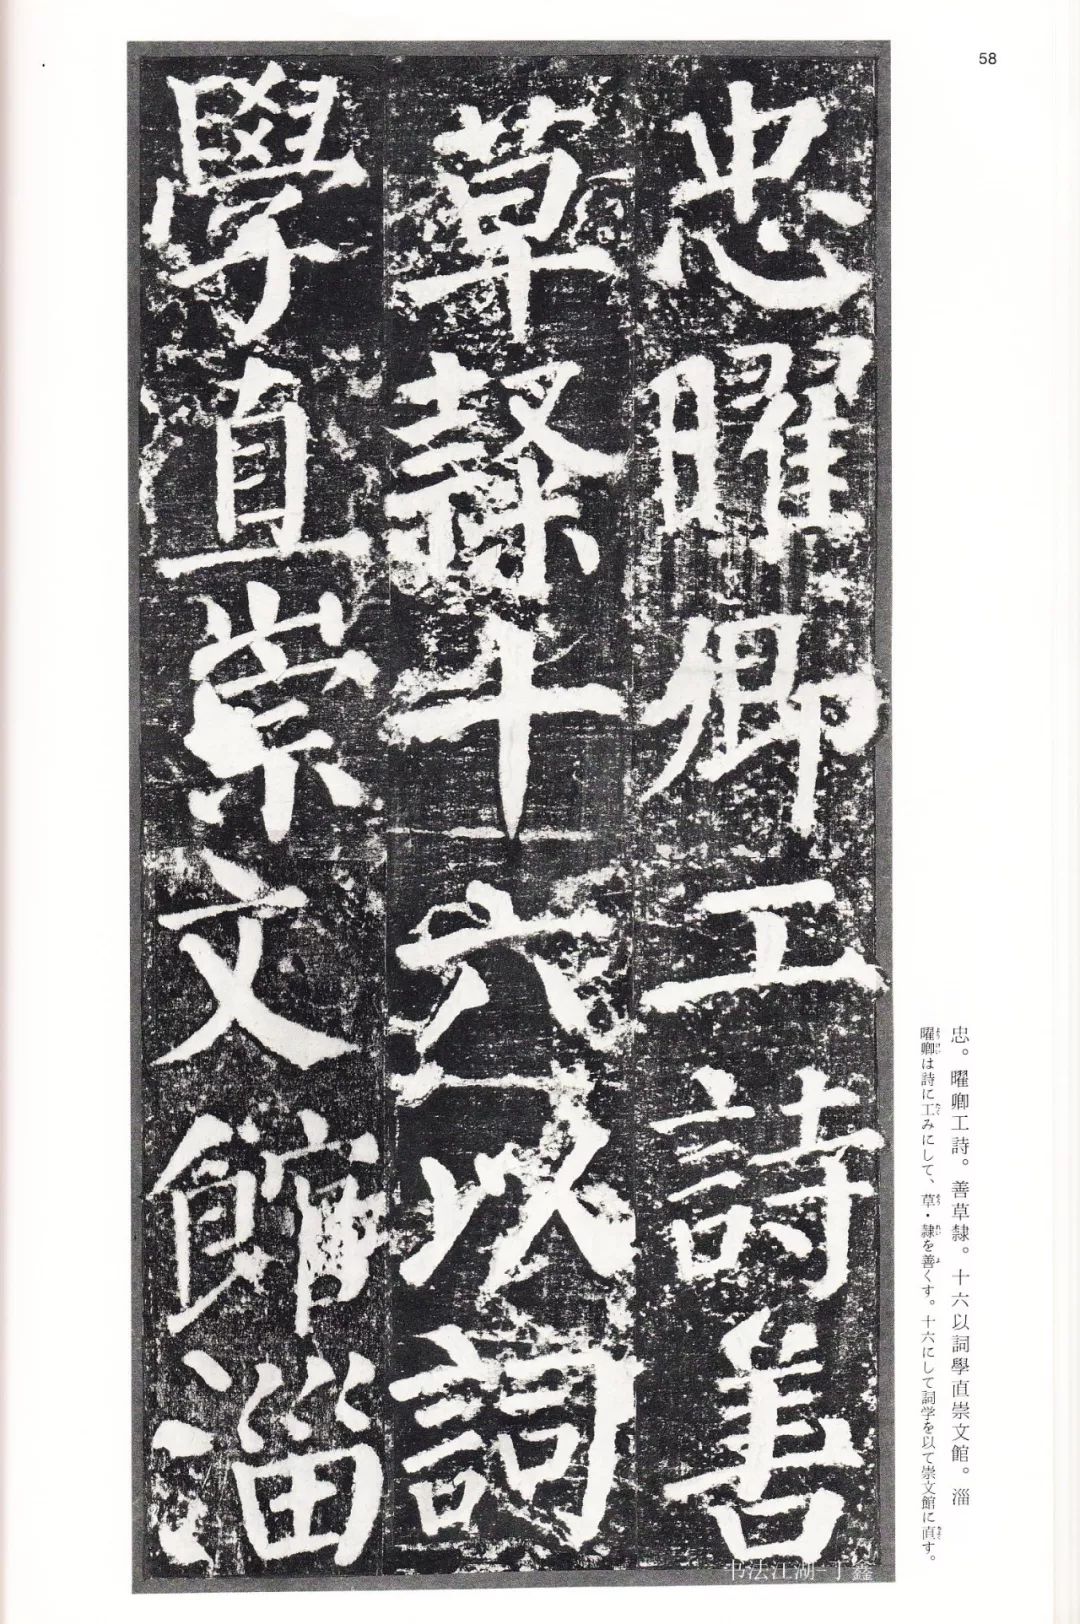 58
忠曜卿工詩善
草隸十六以詞
學直崇文館淄
忠。曜卿工詩。善草隸。十六以詞學直崇文館。淄
曜卿は詩に工みにして、草・隸を善くす。十六にして詞学を以て崇文館に直す。
书法江湖-丁鑫